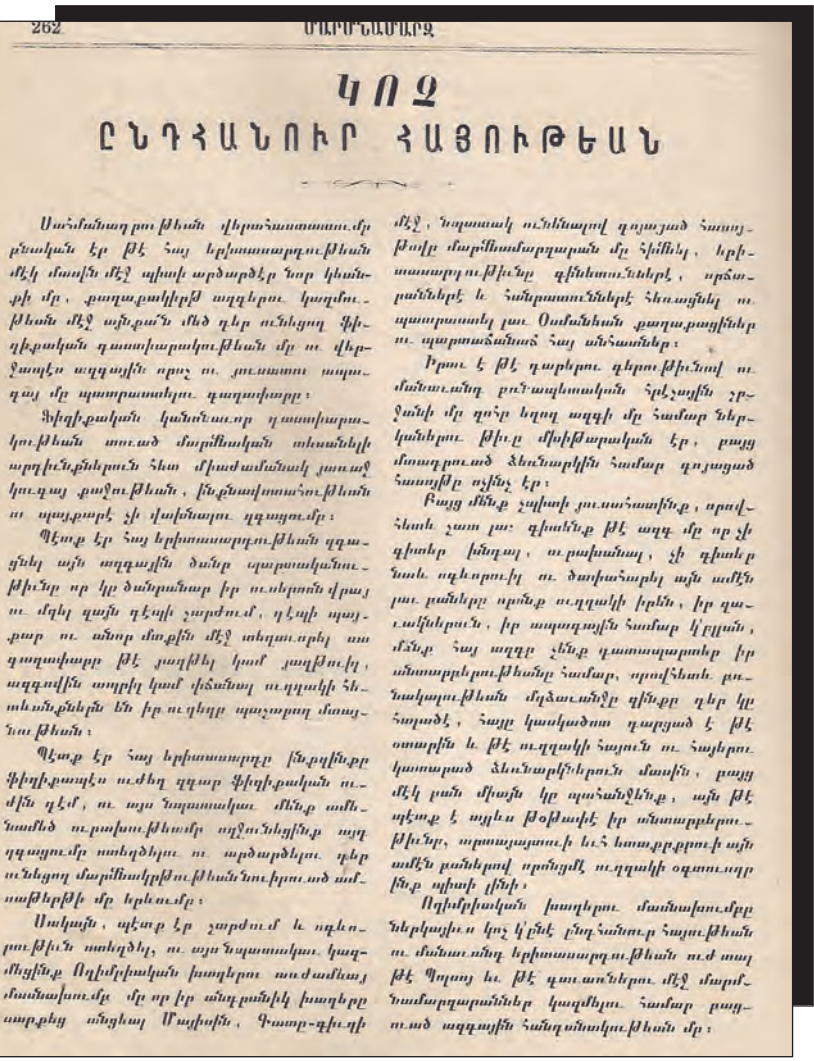 262
ՄԱՐՄՆԱՄԱՐԶ
ԿՈՉ
ԸՆԴՀԱՆՈՒՐ ՀԱՅՈՒԹԵԱՆ
Սահմանադրութեան վերահաստատումը
բնական էր թէ հայ երիտասարդութեան
մէկ մասին մէջ պիտի արծարծէր նոր կեան-
քի մը, քաղաքակիրթ ազգերու կազմու-
թեան մէջ այնքա՜ն մեծ դեր ունեցող ֆի-
զիքական դաստիարակութեան մը ու վեր-
ջապէս ազգային որոշ ու յուսատու ապա-
գայ մը պատրաստելու գաղափարը։
Ֆիզիքական կանոնաւոր դաստիարա-
կութեան տուած մարմնական տեսանելի
արդիւնքներուն հետ միաժամանակ յառաջ
կուգայ քաջութեան, ինքնավստահութեան
ու պայքարէ չի վախնալու զգացումը։
Պէտք էր հայ երիտասարդութեան զգա-
ցնել այն ազգային ծանր պարտականու-
թիւնը որ կը ծանրանար իր ուսերուն վրայ
ու մղել զայն դէպի շարժում, դէպի պայ-
քար ու անոր մտքին մէջ տեղաւորել սա
գաղափարը թէ յաղթել կամ յաղթուիլ,
ազգովին ապրիլ կամ փճանալ ուղղակի հե-
տեւանքներն են իր ուղեղը պաշարող մտայ-
նութեան։
Պէտք էր հայ երիտասարդը ինքզինքը
ֆիզիքապէս ուժեղ զգար ֆիզիքական ու-
ժին դէմ, ու այս նպատակաւ մենք ամե-
նամեծ ուրախութեամբ ողջունեցինք այդ
զգացումը ստեղծելու ու արծարծելու դեր
ունեցող մարմնակրթութեան նուիրուած ամ-
սաթերթի մը երեւումը։
Սակայն, պէտք էր շարժում և ոգևո-
րութիւն ստեղծել, ու այս նպատակաւ կազ-
մեցինք Ողիմպիական խաղերու առժամեայ
մասնախումբ մը որ իր անդրանիկ խաղերը
սարքեց անցեալ Մայիսին, Գատը-գիւղի
մէջ, նպատակ ունենալով գոյացած հասոյ-
թովը մարմնամարզարան մը հիմնել, երի-
տասարդութիւնը գինետուններէ, սրճա-
րաններէ և հանրատուններէ հեռացնել ու
պատրաստել լաւ Օսմանեան քաղաքացիներ
ու պարտաճանաչ հայ անհատներ։
Իրաւ է թէ դարերու գերութիւնով ու
մանաւանդ բռնապետական հրէշային շր-
ջանի մը զոհը եղող ազգի մը համար ներ-
կաներու թիւը մխիթարական էր, բայց
մտադրուած ձեռնարկին համար գոյացած
հասոյթը ոչինչ էր։
Բայց մենք չպիտի յուսահատինք, որով-
հետև շատ լաւ գիտենք թէ ազգ մը որ չի
գիտեր խնդալ, ուրախանալ, չի գիտեր
նաև ոգևորուիլ ու ծափահարել այն ամէն
լաւ բաները որոնք ուղղակի իրեն, իր զա-
ւակներուն, իր ապագային համար կ'ըլլան,
մենք հայ ազգը չենք դատապարտեր իր
անտարբերութեանը համար, որովհետև բռ-
նակալութեան մղձաւանջը զինքը դեր կը
հալածէ, հայը կասկածոտ դարձած է թէ
օտարին և թէ ուղղակի հայուն ու հայերու
կատարած ձեռնարկներուն մասին, բայց
մէկ բան միայն կը պահանջենք, այն թէ
պէտք է այլևս թօթափէ իր անտարբերու-
թիւնը, արտայայտուի եւ հետաքրքրուի այն
ամէն բաներով որոնցմէ ուղղակի օգտուողը
ինք պիտի լինի։
Ողիմպիական խաղերու մասնախումբը
ներկայիւս կոչ կ'ընէ ընդհանուր հայութեան
ու մանաւանդ երիտասարդութեան ուժ տալ
թէ Պոլսոյ եւ թէ գաւառներու մէջ մարմ-
նամարզարաններ կազմելու համար բաց-
ուած ազգային հանգանակութեան մը։